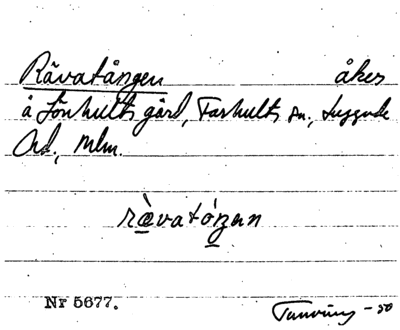 Rävatången åker
å Lönhults gård, Farhults sn., Luggude
hd, Mlm.
rä̀vató̱ŋən
Nr 5677.
-50